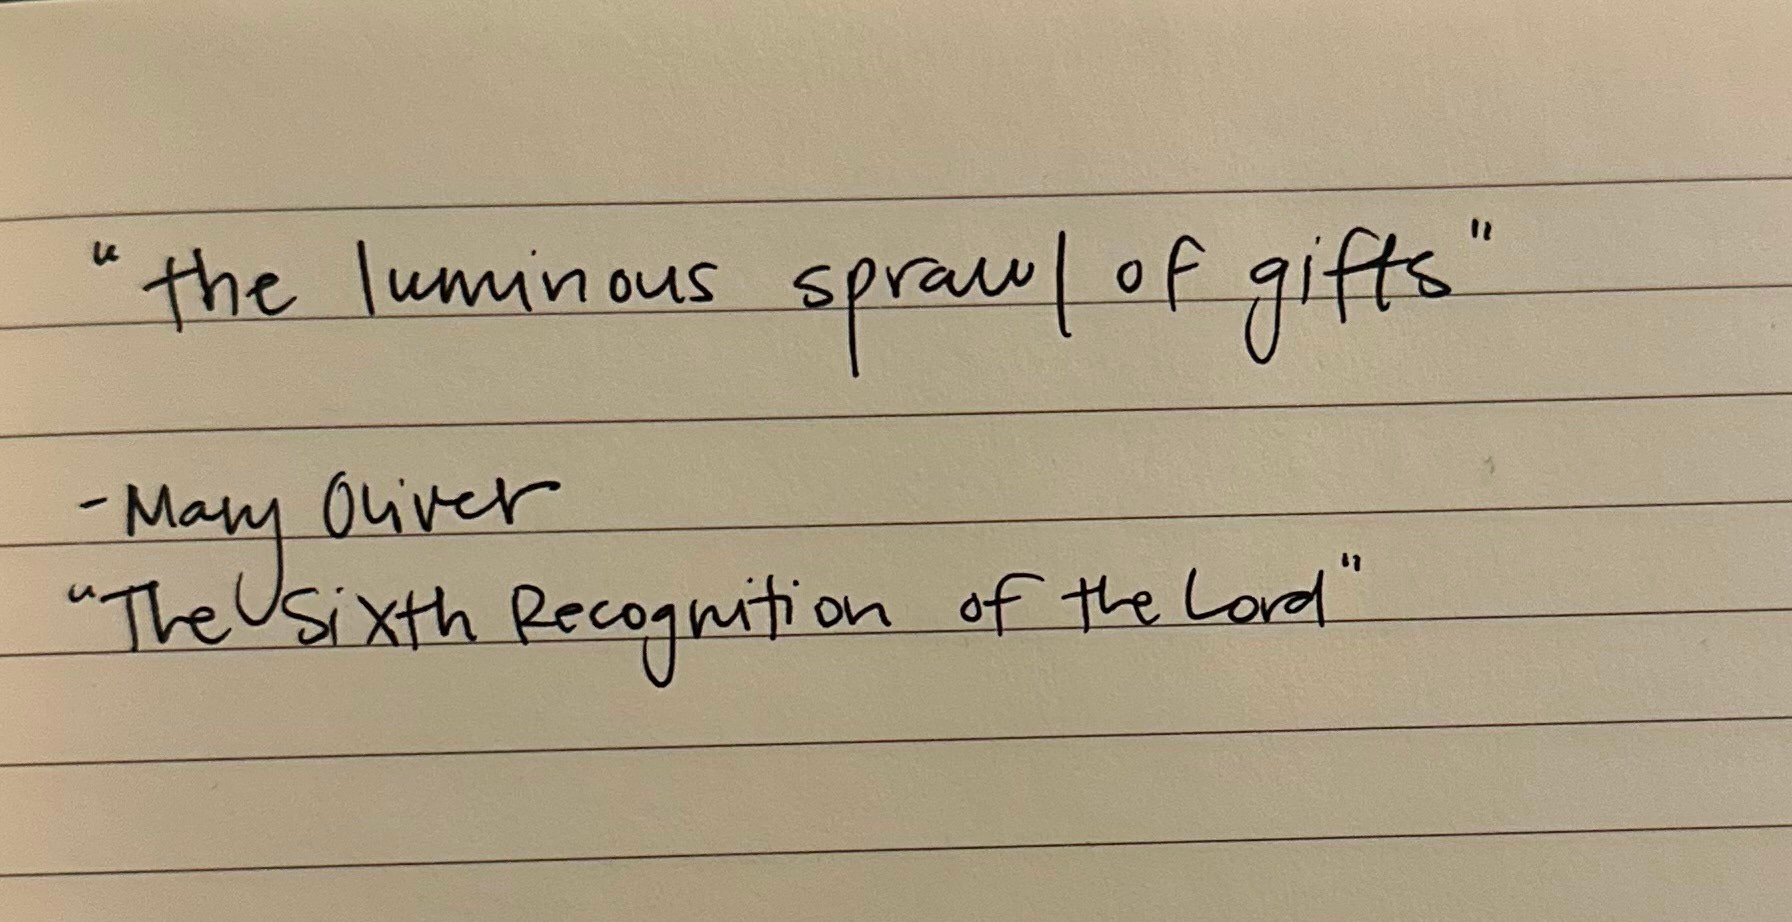 "the luminous sprawl of gifts"
-Mary Oliver
"The Sixth Recognition of the Lord"